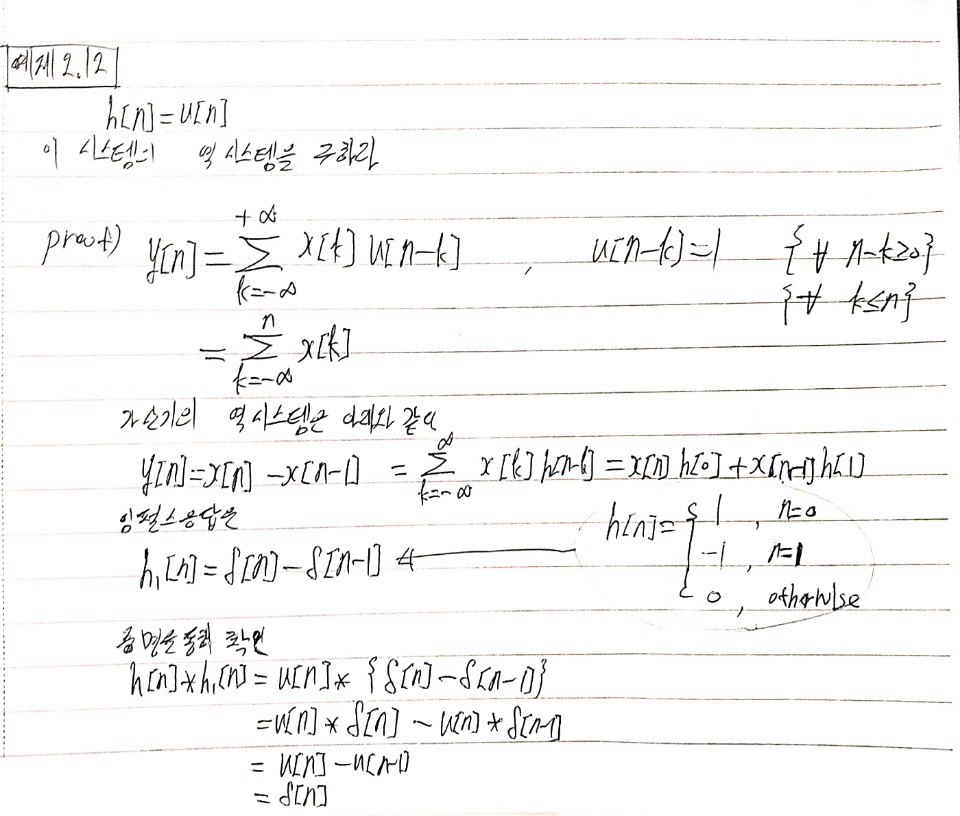 예제 2.12
h[n]=u[n]
이 시스템의 역 시스템을 구하라
proof) y[n] = Σ_{k=-∞}^{+∞} x[k] u[n-k] , u[n-k]=1 {∀ n-k≥0}
{∀ k≤n}
= Σ_{k=-∞}^{n} x[k]
가산기의 역시스템은 아래와 같다
y[n]=x[n]-x[n-1] = Σ_{k=-∞}^{∞} x[k] h[n-k] = x[n] h[0] + x[n-1] h[1]
임펄스응답은
h[n]= { 1 , n=0
-1 , n=1
0 , otherwise
h₁[n]=δ[n]-δ[n-1] ←
증명을 통해 확인
h[n]*h₁[n] = u[n]* {δ[n]-δ[n-1]}
=u[n]*δ[n] - u[n]*δ[n-1]
= u[n]-u[n-1]
= δ[n]